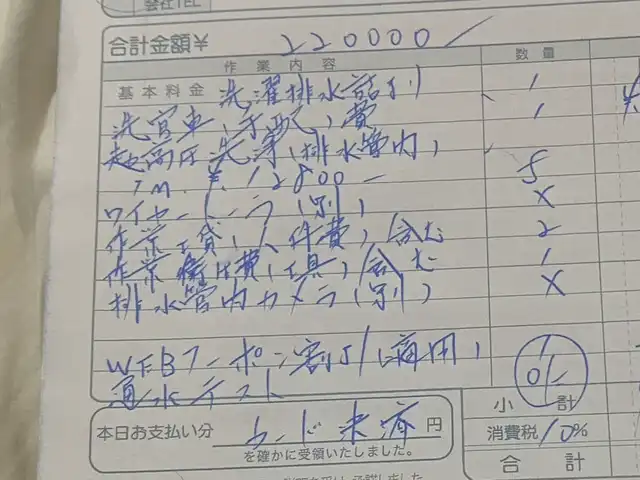 会社TEL
合計金額¥ 220000/
作業内容 数量
基本料金 洗濯排水詰り 1
洗管車(手配)費 1
超高圧洗浄(排水管内)
1m ¥12800- 5
ワイヤートーラー(別) X
作業工賃(人件費)含む 2
作業 費(工具)含む 1
排水管内カメラ(別) X
WEBクーポン割引(適用) 1
通水テスト 0/-
小計
本日お支払い分 カード 円
消費税 10%
を確かに受領いたしました。
合計